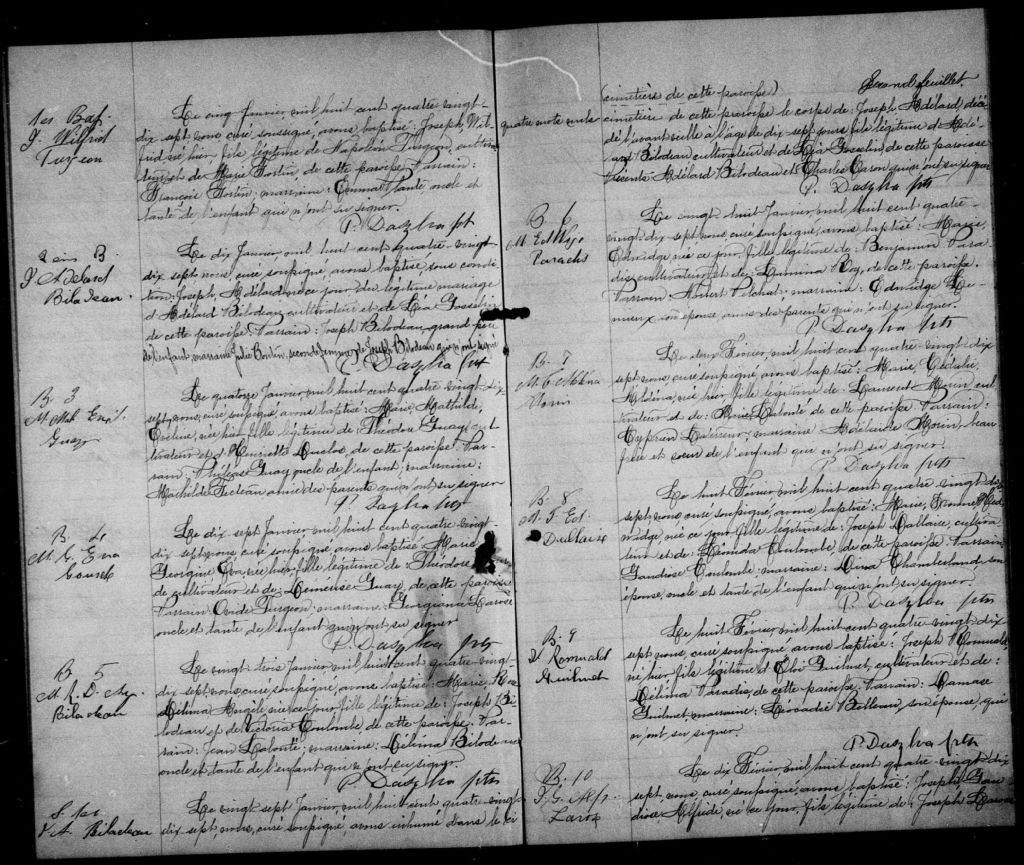 1er Bap.
J. Wilfrid
Turgeon
Le cinq Janvier, mil huit cent quatre vingt-
dix sept, nous, curé, soussigné, avons baptisé: Joseph, Wil-
frid, né hier, fils légitime de Napoléon Turgeon,
et de Marie Fortin, de cette paroisse. Parrain:
François Fortin; marraine: Emma oncle et
tante de l'enfant qui n'ont su signer.
P. Dassylva ptr
2eme B.
J. Adelard
Bilodeau.
Le dix Janvier, mil huit cent quatre-vingt-
dix sept, nous, curé, soussigné, avons baptisé, sous condi-
tion: Joseph Adélard, né ce jour, du légitime mariage
d'Adélard Bilodeau, cultivateur et de Léa Gosselin
de cette paroisse. Parrain: Joseph Bilodeau, grand père
de l'enfant, marraine Julie Fortin, seconde femme de Joseph Bilodeau, qui n'ont su signer
P. Dassylva ptr
B. 3
Guay
Le quatorze Janvier, mil huit cent quatre vingt dix
sept, nous, curé soussigné, avons baptisé: Marie, Mathilde,
née hier, fille légitime de Théodore Guay, cul-
tivateur et d'Henriette Duclos, de cette paroisse. Par-
rain: Philéas Guay, oncle de l'enfant; marraine:
Mathilde amie des parents qui n'ont su signer
P. Dassylva ptr
B. 4
M. G. Eva
Le dix sept Janvier, mil huit cent quatre vingt-
dix sept, nous, curé soussigné, avons baptisé: Marie
Georgine Eva, née hier, fille légitime de Théodore
cultivateur et de: Démérise Guay, de cette paroisse
Parrain: Turgeon; marraine: Georgiana
oncle et tante de l'enfant qui n'ont su signer
P. Dassylva ptr
B. 5
Bilodeau
Le vingt trois Janvier, mil huit cent quatre-vingt-
dix sept, nous, curé, soussigné, avons baptisé: Marie
née ce jour, fille légitime de: Joseph Bi-
lodeau et de Victoria Coulombe, de cette paroisse. Par-
rain: Jean marraine: Célima Bilodeau
oncle et tante de l'enfant qui n'ont su signer.
P. Dassylva ptr
S. 1er
Bilodeau
Le vingt sept Janvier, mil huit cent quatre-vingt
dix sept, nous, curé soussigné, avons inhumé dans le ci
Second feuillet.
(cimetière de cette paroisse)
quatre mots nuls
cimetière de cette paroisse le corps de: Joseph Adélard décé-
dé l'avant veille à l'âge de dix sept jours fils légitime d'Adé-
lard Bilodeau cultivateur et de Léa Gosselin de cette paroisse
Présents Adélard Bilodeau et Charles Caron qui n'ont su signer
P. Dassylva ptr
B. 6
Paradis
Le vingt huit Janvier, mil huit cent quatre-
vingt-dix sept, nous, curé, soussigné, avons baptisé: Marie,
Edwidge née ce jour, fille légitime de: Benjamin Para-
dis, cultivateur et de: Roy, de cette paroisse.
Parrain: marraine: Edwidge Le-
mieux son épouse, amis des parents qui n'ont su signer.
P. Dassylva ptr
B. 7
Morin
Le deux Février, mil huit cent quatre-vingt-dix
sept, nous, curé soussigné, avons baptisé: Marie
née hier, fille légitime de: Laurent Morin, cul-
tivateur et de: Marie Lalonté de cette paroisse. Parrain:
Cyprien marraine Adélaïde Morin, beau
frère et soeur de l'enfant qui n'ont su signer
P. Dassylva ptr
B. 8
Le huit Février, mil huit cent quatre vingt dix
sept, nous, curé, soussigné, avons baptisé: Marie,
née ce jour, fille légitime de: Joseph cultiva-
teur et de: Coulombe, de cette paroisse. Parrain
Coulombe; marraine: Chamberland, son
épouse, oncle et tante de l'enfant qui n'ont su signer.
P. Dassylva ptr
B. 9
J. Romuald
Guilmet
Le huit Février, mil huit cent quatre vingt dix
sept, nous, curé soussigné, avons baptisé: Joseph Romuald
né hier, fils légitime d'Eloi Guilmet, cultivateur et de:
Célina Paradis, de cette paroisse. Parrain: Damase
Guilmet; marraine: Léocadie son épouse, qui
n'ont su signer.
P. Dassylva ptr
B. 10
Le dix Février, mil huit cent quatre-vingt-dix
sept, nous, curé soussigné, avons baptisé: Joseph
né ce jour, fils légitime de: Joseph